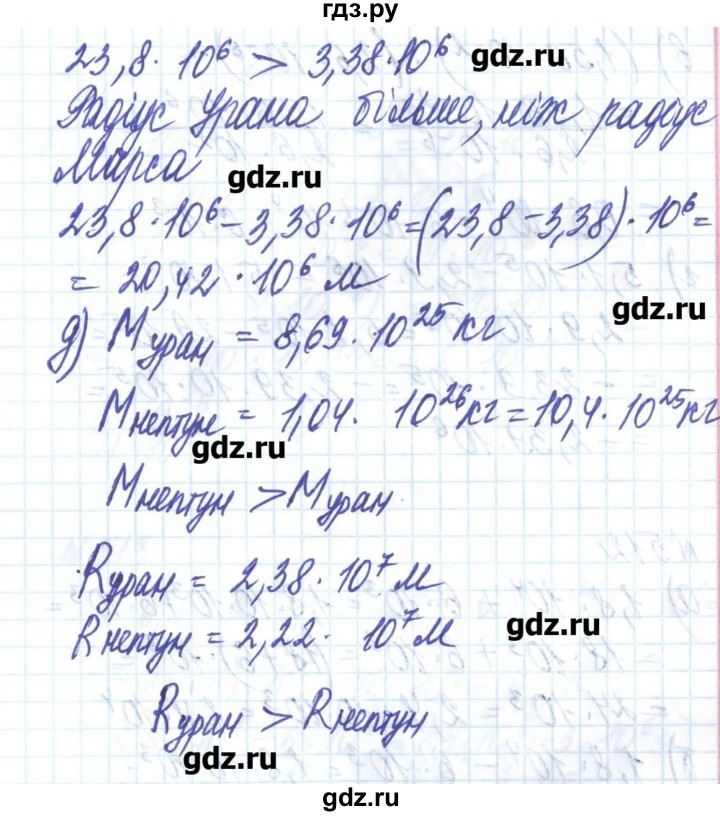 гдз.ру
23,8 · 10⁶ > 3,38 · 10⁶ gdz.ru
Радіус Урана більше, ніж радіус
Марса
gdz.ru
23,8 · 10⁶ - 3,38 · 10⁶ = (23,8 - 3,38) · 10⁶ =
= 20,42 · 10⁶ м
gdz.ru
д) Mуран = 8,69 · 10²⁵ кг
Mнептун = 1,04 · 10²⁶ кг = 10,4 · 10²⁵ кг
gdz.ru
Mнептун > Mуран
Rуран = 2,38 · 10⁷ м
Rнептун = 2,22 · 10⁷ м gdz.ru
Rуран > Rнептун
gdz.ru
gdz.ru